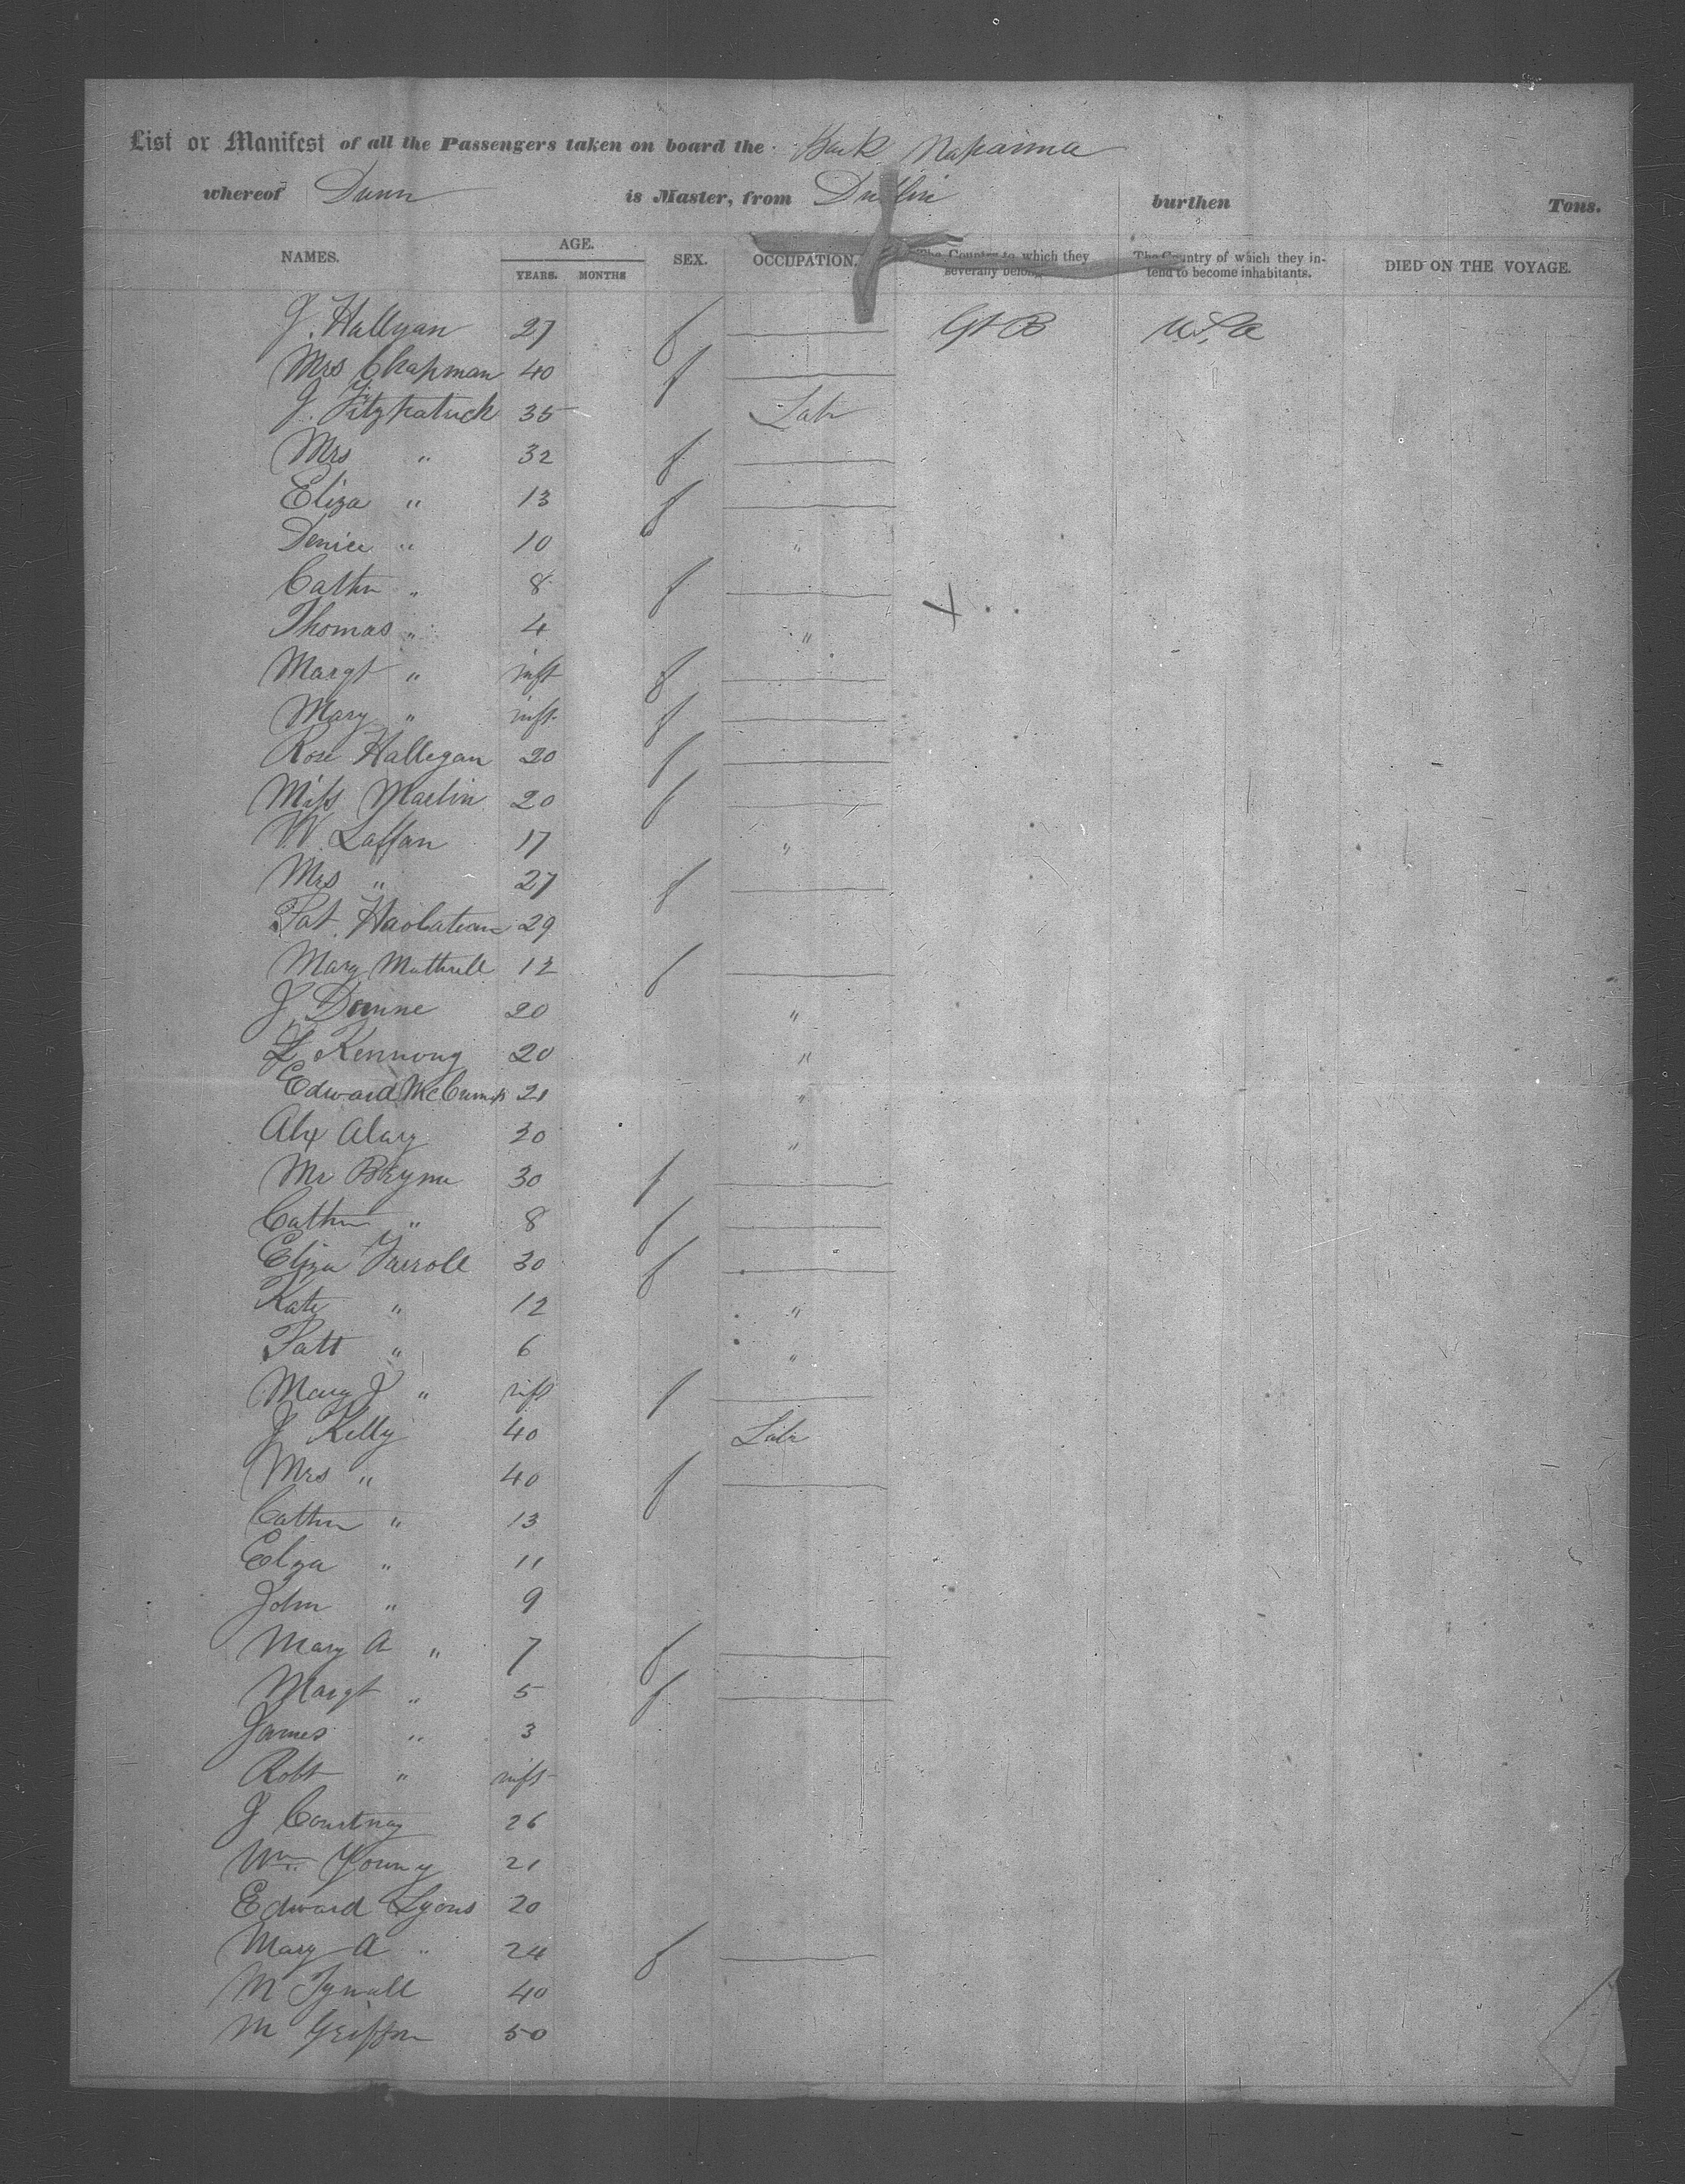 List or Manifest of all the Passengers taken on board the Bark Naparima
whereof Dunn is Master, from Dublin burthen Tons.
NAMES. AGE. YEARS. MONTHS SEX. OCCUPATION. The Country to which they severally belong The Country of which they intend to become inhabitants. DIED ON THE VOYAGE.
J. Hallgan 27 f Gt B U.S.A
Mrs Chapman 40 f
J. Fitzpatrick 35 Labr
Mrs " 32 f
Eliza " 13 f
Denice " 10 "
Cathn " 8 f
Thomas " 4 "
Margt " inft f
Mary " inft f
Rose Hallegan 20 f
Miss Martin 20 f
W. Laffan 17 "
Mrs " 27 f
Pat. 29
Mary 12 f
J. Dunne 20 "
20 "
Edward 21 "
Alx Alary 30 "
Mr Bryne 30 f
Cathn " 8 f
Eliza Farroll 30 f
Kate " 12 "
Patt " 6 "
Mary J " inft f
J Kelly 40 Labr
Mrs " 40 f
Cathn " 13
Eliza " 11
John " 9
Mary A " 7 f
Margt " 5 f
James " 3
Robt " inft
J Courtnay 26
Wm Young 21
Edward Lyons 20
Mary A " 24 f
M Tynall 40
M Griffin 50